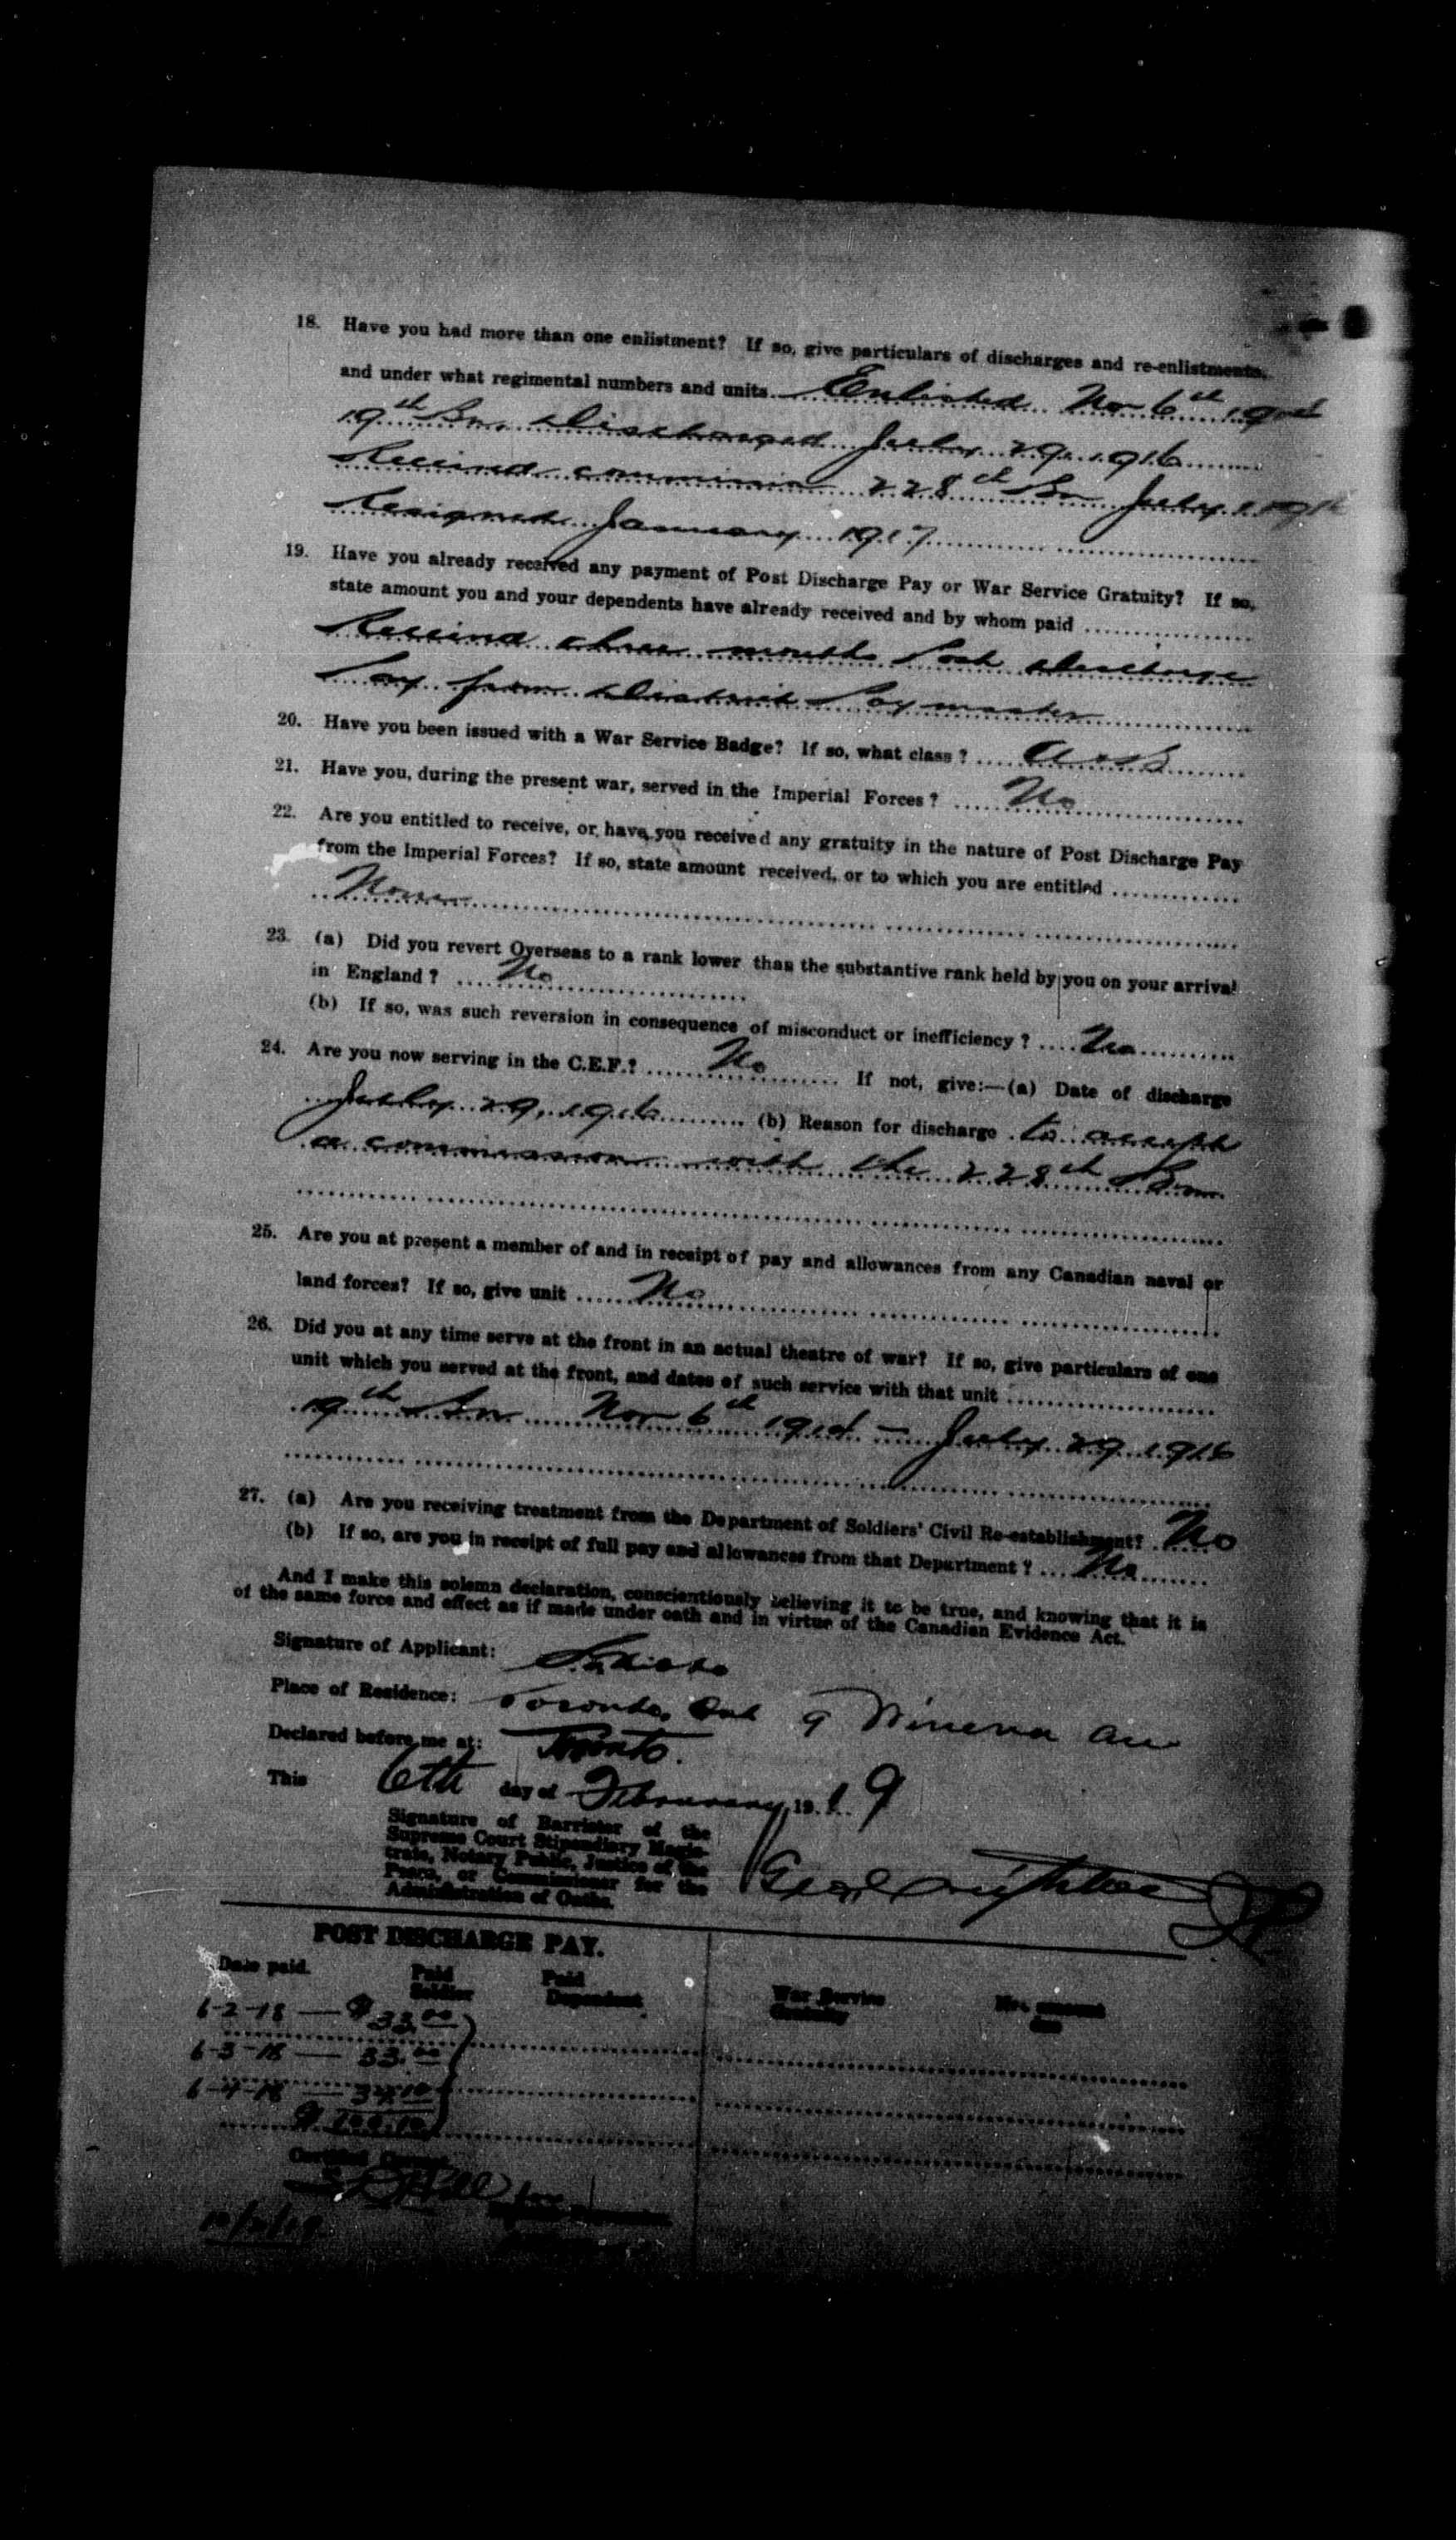 18. Have you had more than one enlistment? If so, give particulars of discharges and re-enlistments,
and under what regimental numbers and units. Enlisted Nov 6th 1914
19th Bn. Discharged July 29. 1916
Received commission 228th Bn July 1916
Resigned January 1917
19. Have you already received any payment of Post Discharge Pay or War Service Gratuity? If so,
state amount you and your dependents have already received and by whom paid
Received three months Post Discharge
Pay from District Paymaster
20. Have you been issued with a War Service Badge? If so, what class?
21. Have you, during the present war, served in the Imperial Forces? No
22. Are you entitled to receive, or have you received any gratuity in the nature of Post Discharge Pay
from the Imperial Forces? If so, state amount received, or to which you are entitled
None
23. (a) Did you revert Overseas to a rank lower than the substantive rank held by you on your arrival
in England? No
(b) If so, was such reversion in consequence of misconduct or inefficiency? No
24. Are you now serving in the C.E.F.? No If not, give:—(a) Date of discharge
July 29, 1916 (b) Reason for discharge to accept
a commission with the 228th Bn.
25. Are you at present a member of and in receipt of pay and allowances from any Canadian naval or
land forces? If so, give unit No
26. Did you at any time serve at the front in an actual theatre of war? If so, give particulars of one
unit which you served at the front, and dates of such service with that unit
19th Bn Nov 6th 1914 — July 29 1916
27. (a) Are you receiving treatment from the Department of Soldiers' Civil Re-establishment? No
(b) If so, are you in receipt of full pay and allowances from that Department? No
And I make this solemn declaration, conscientiously believing it to be true, and knowing that it is
of the same force and effect as if made under oath and in virtue of the Canadian Evidence Act.
Signature of Applicant:
Place of Residence: Toronto, Ont 9 Minerva Ave
Declared before me at: Toronto.
This 6th day of February 1919
Signature of Barrister of the
Supreme Court Stipendiary Magis-
trate, Notary Public, Justice of the
Peace, or Commissioner for the
Administration of Oaths.
POST DISCHARGE PAY.
Date paid. Paid Soldier Paid Dependent War Service Gratuity Net amount due
6-2-18 — $33.00
6-3-18 — 33.00
6-4-18 — 34.10
$100.10
Certified Correct